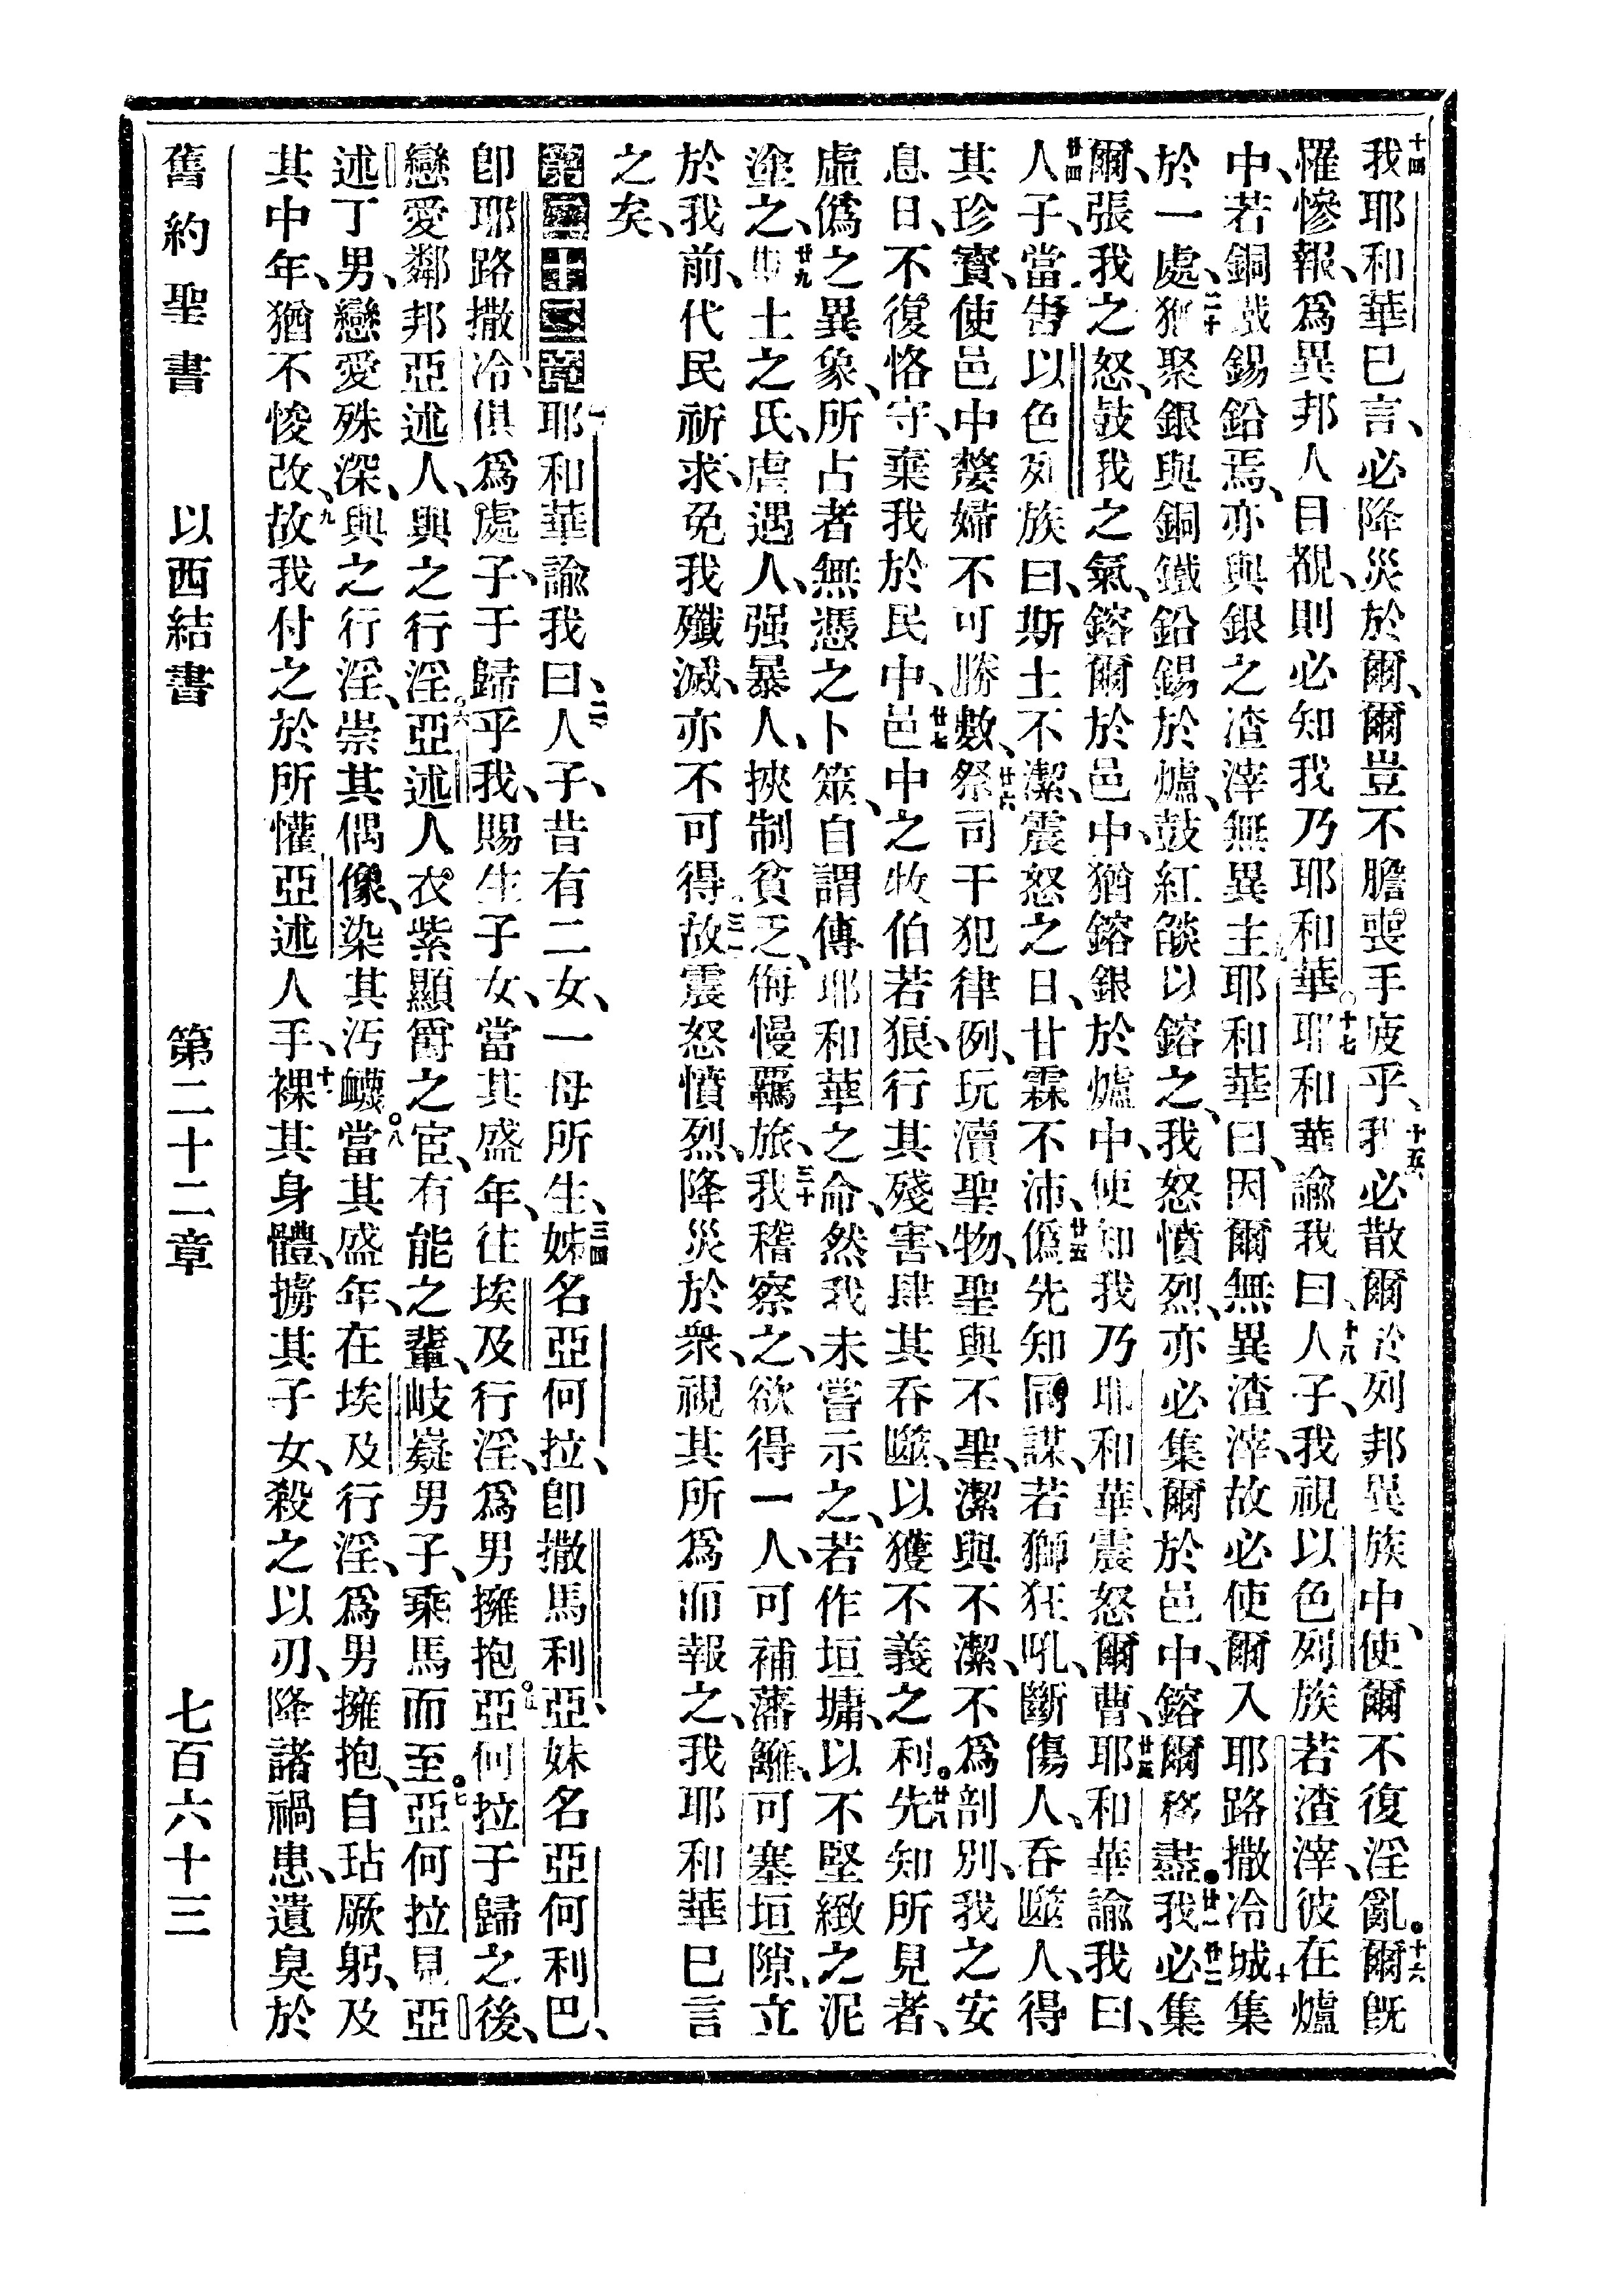 十四我耶和華已言、必降災於爾、爾豈不膽喪手疲乎、十五我必散爾於列邦異族中、使爾不復淫亂。十六爾旣
罹慘報、爲異邦人目覩、則必知我乃耶和華。十七耶和華諭我曰、十八人子、我視以色列族若渣滓、彼在爐
中、若銅鐵錫鉛焉、亦與銀之渣滓無異、主耶和華曰、因爾無異渣滓、故必使爾入耶路撒冷城、集
於一處、二十猶聚銀與銅鐵鉛錫於爐、鼓紅燄以鎔之、我怒憤烈、亦必集爾於邑中、鎔爾務盡。廿一廿二我必集
爾、張我之怒、鼓我之氣、鎔爾於邑中、猶鎔銀於爐中、使知我乃耶和華、震怒爾曹、廿三耶和華諭我曰、
廿四人子、當告以色列族曰、斯土不潔、震怒之日、甘霖不沛、廿五僞先知同謀、若獅狂吼、斷傷人、吞噬人、得
其珍寶、使邑中嫠婦不可勝數、廿六祭司干犯律例、玩瀆聖物、聖與不聖、潔與不潔、不爲剖別、我之安
息日、不復恪守、棄我於民中、廿七邑中之牧伯若狼、行其殘害、肆其吞噬、以獲不義之利。廿八先知所見者、
虛僞之異象、所占者無憑之卜筮、自謂傳耶和華之命、然我未嘗示之、若作垣墉、以不堅緻之泥
塗之、廿九斯土之氏、虐遇人、强暴人、挾制貧乏、侮慢羈旅、三十我稽察之、欲得一人、可補藩籬、可塞垣隙、立
於我前、代民祈求、免我殲滅、亦不可得、三一故震怒憤烈、降災於衆、視其所爲而報之、我耶和華已言
之矣、
第二十三章一耶和華諭我曰、二人子、昔有二女、一母所生、三四姊名亞何拉、卽撒馬利亞、妹名亞何利巴、
卽耶路撒冷、俱爲處子、于歸乎我、賜生子女、當其盛年、往埃及行淫、爲男擁抱。五亞何拉于歸之後、
戀愛鄰邦亞述人、與之行淫、六亞述人衣紫顯爵之宦、有能之輩、岐嶷男子、乘馬而至。七亞何拉見亞
述丁男、戀愛殊深、與之行淫、崇其偶像、染其汚衊。八當其盛年、在埃及行淫、爲男擁抱、自玷厥躬、及
其中年、猶不悛改、九故我付之於所懽亞述人手、十裸其身體、擄其子女、殺之以刃、降諸禍患、遺臭於
舊約聖書　以西結書　第二十二章　七百六十三